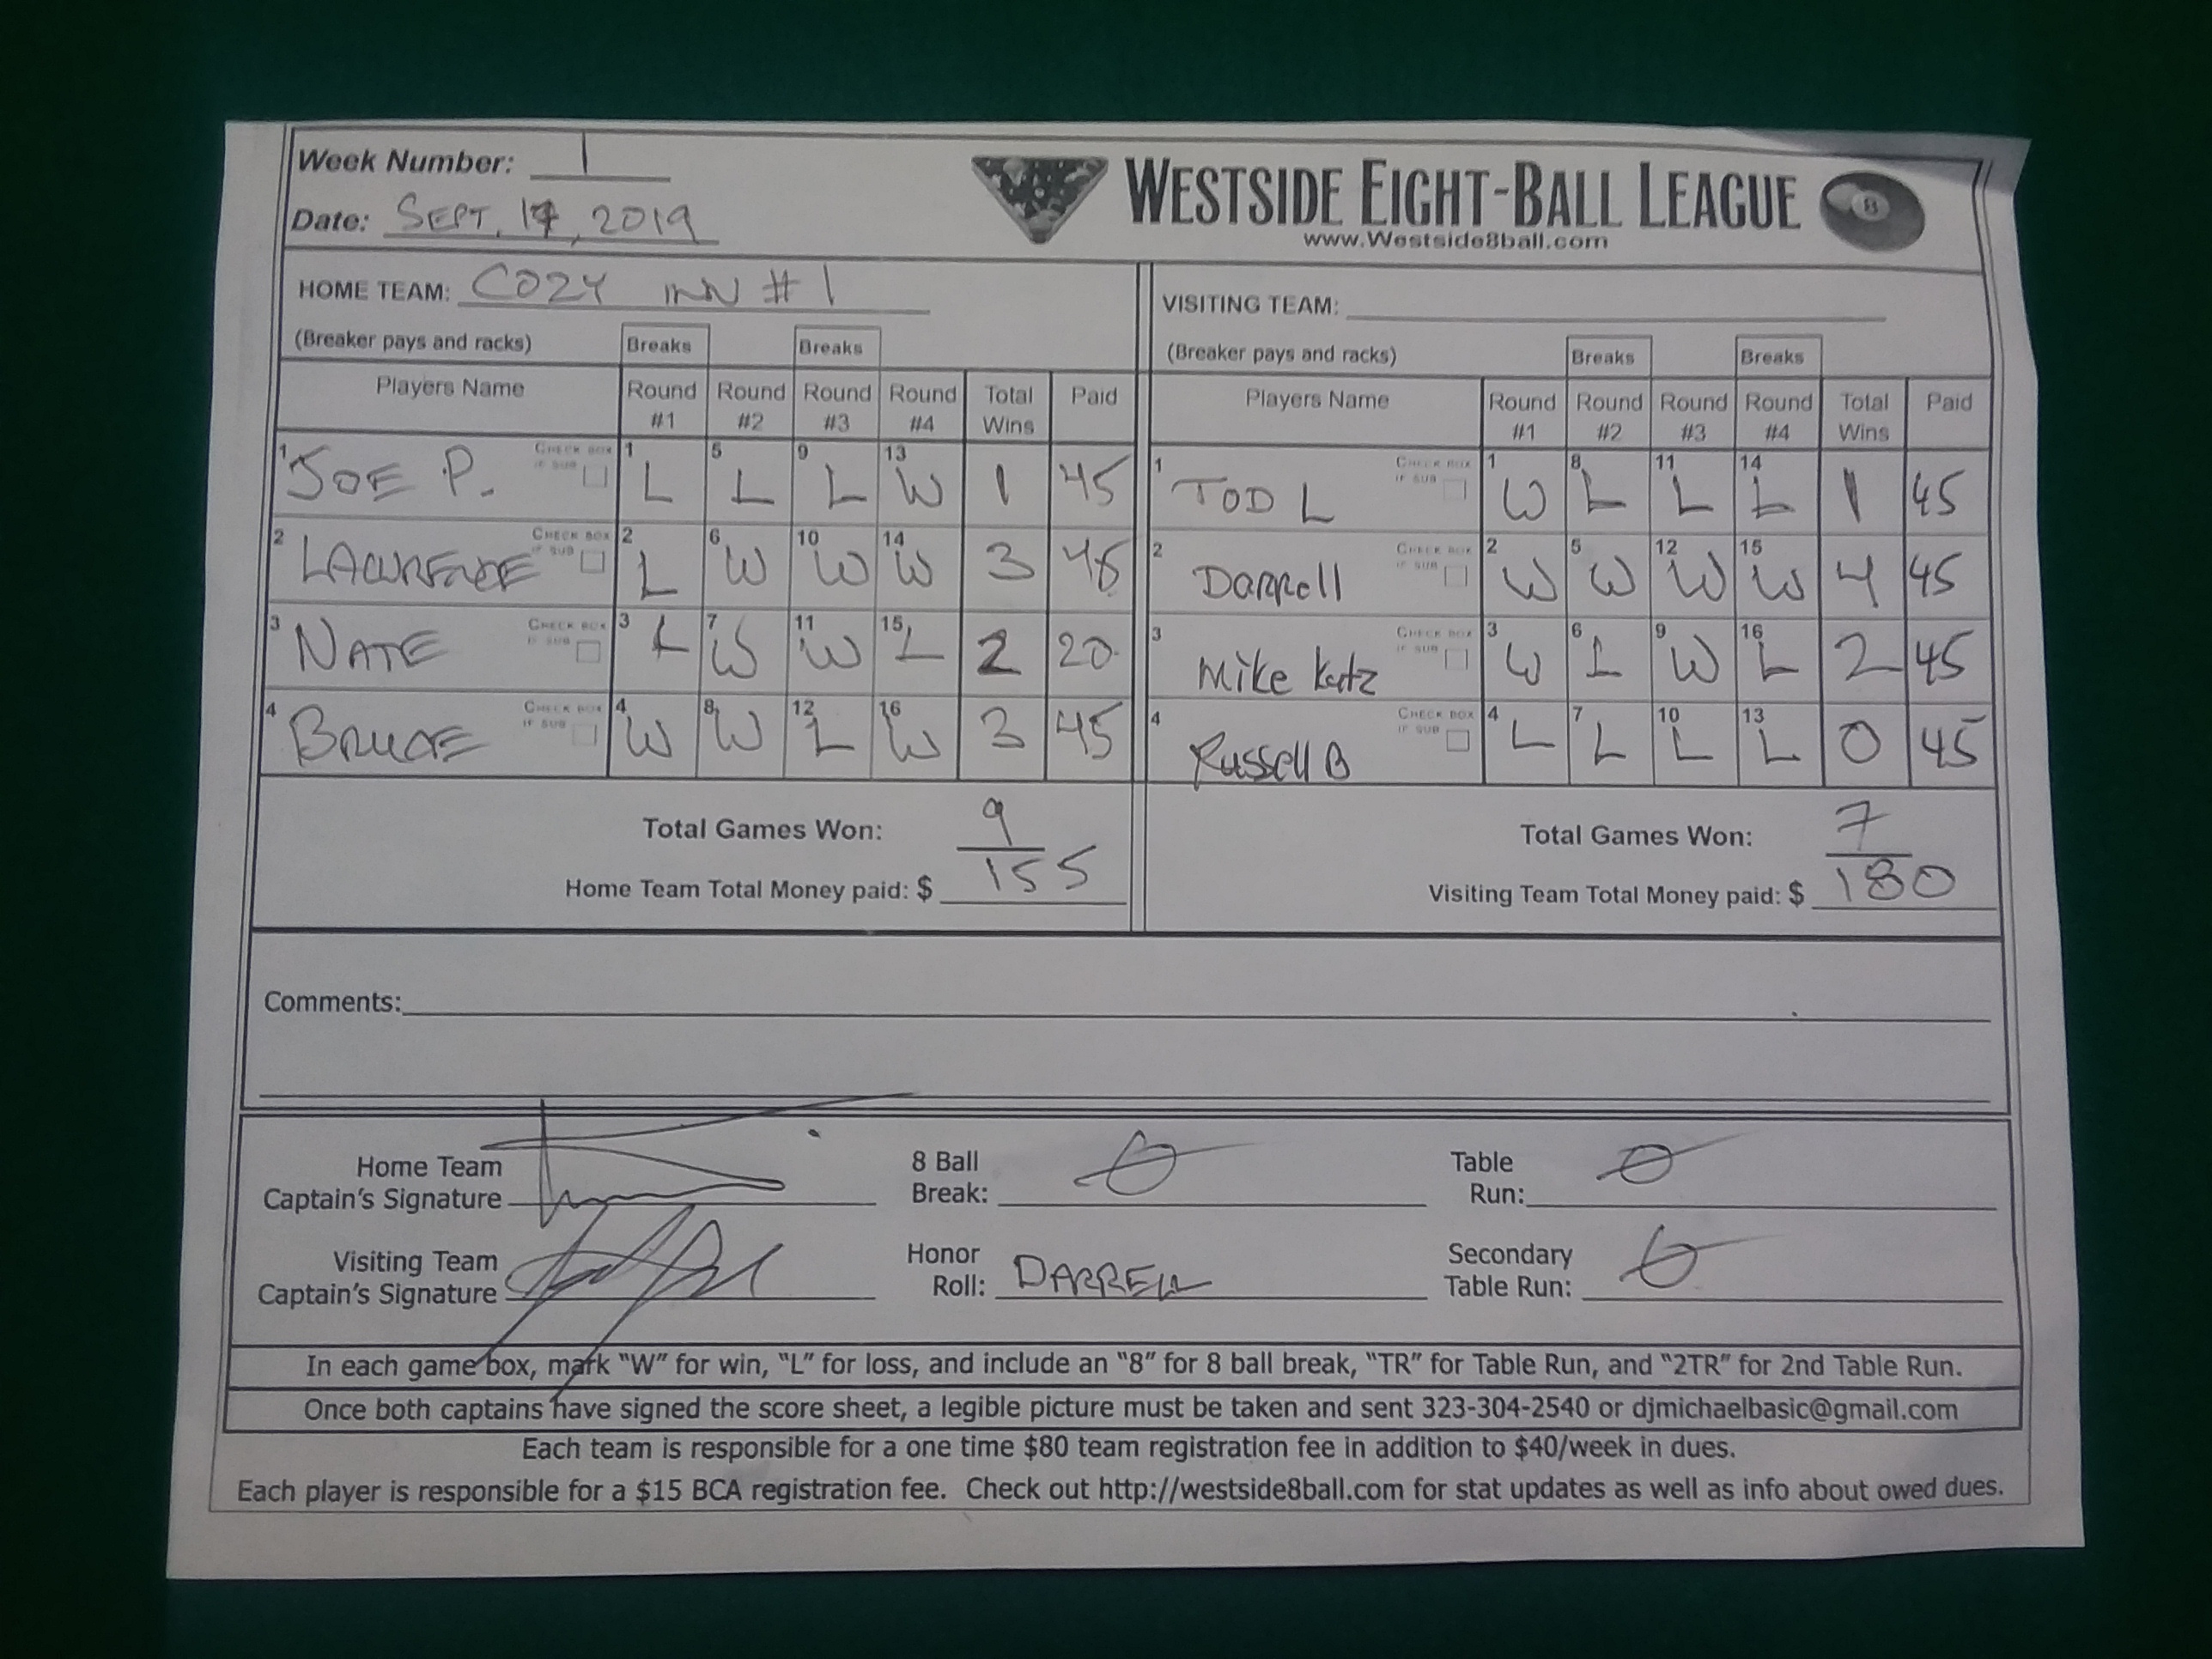 Week Number: 1
WESTSIDE EIGHT-BALL LEAGUE 8
www.Westside8ball.com
Date: SEPT. 17, 2019
HOME TEAM: COZY INN #1 VISITING TEAM:
(Breaker pays and racks) Breaks Breaks (Breaker pays and racks) Breaks Breaks
Players Name Round #1 Round #2 Round #3 Round #4 Total Wins Paid Players Name Round #1 Round #2 Round #3 Round #4 Total Wins Paid
1 JOE P. CHECK BOX IF SUB 1 L 5 L 9 L 13 W 1 45 1 TOD L CHECK BOX IF SUB 1 W 8 L 11 L 14 L 1 45
2 LAWRENCE CHECK BOX IF SUB 2 L 6 W 10 W 14 W 3 45 2 Darrell CHECK BOX IF SUB 2 W 5 W 12 W 15 W 4 45
3 NATE CHECK BOX IF SUB 3 L 7 W 11 W 15 L 2 20 3 Mike Katz CHECK BOX IF SUB 3 W 6 L 9 W 16 L 2 45
4 BRUCE CHECK BOX IF SUB 4 W 8 W 12 L 16 W 3 45 4 Russell B CHECK BOX IF SUB 4 L 7 L 10 L 13 L 0 45
Total Games Won: 9 Total Games Won: 7
Home Team Total Money paid: $ 155 Visiting Team Total Money paid: $ 180
Comments:
Home Team Captain's Signature 8 Ball Break: 0 Table Run: 0
Visiting Team Captain's Signature Honor Roll: DARRELL Secondary Table Run: 0
In each game box, mark "W" for win, "L" for loss, and include an "8" for 8 ball break, "TR" for Table Run, and "2TR" for 2nd Table Run.
Once both captains have signed the score sheet, a legible picture must be taken and sent 323-304-2540 or djmichaelbasic@gmail.com
Each team is responsible for a one time $80 team registration fee in addition to $40/week in dues.
Each player is responsible for a $15 BCA registration fee. Check out http://westside8ball.com for stat updates as well as info about owed dues.